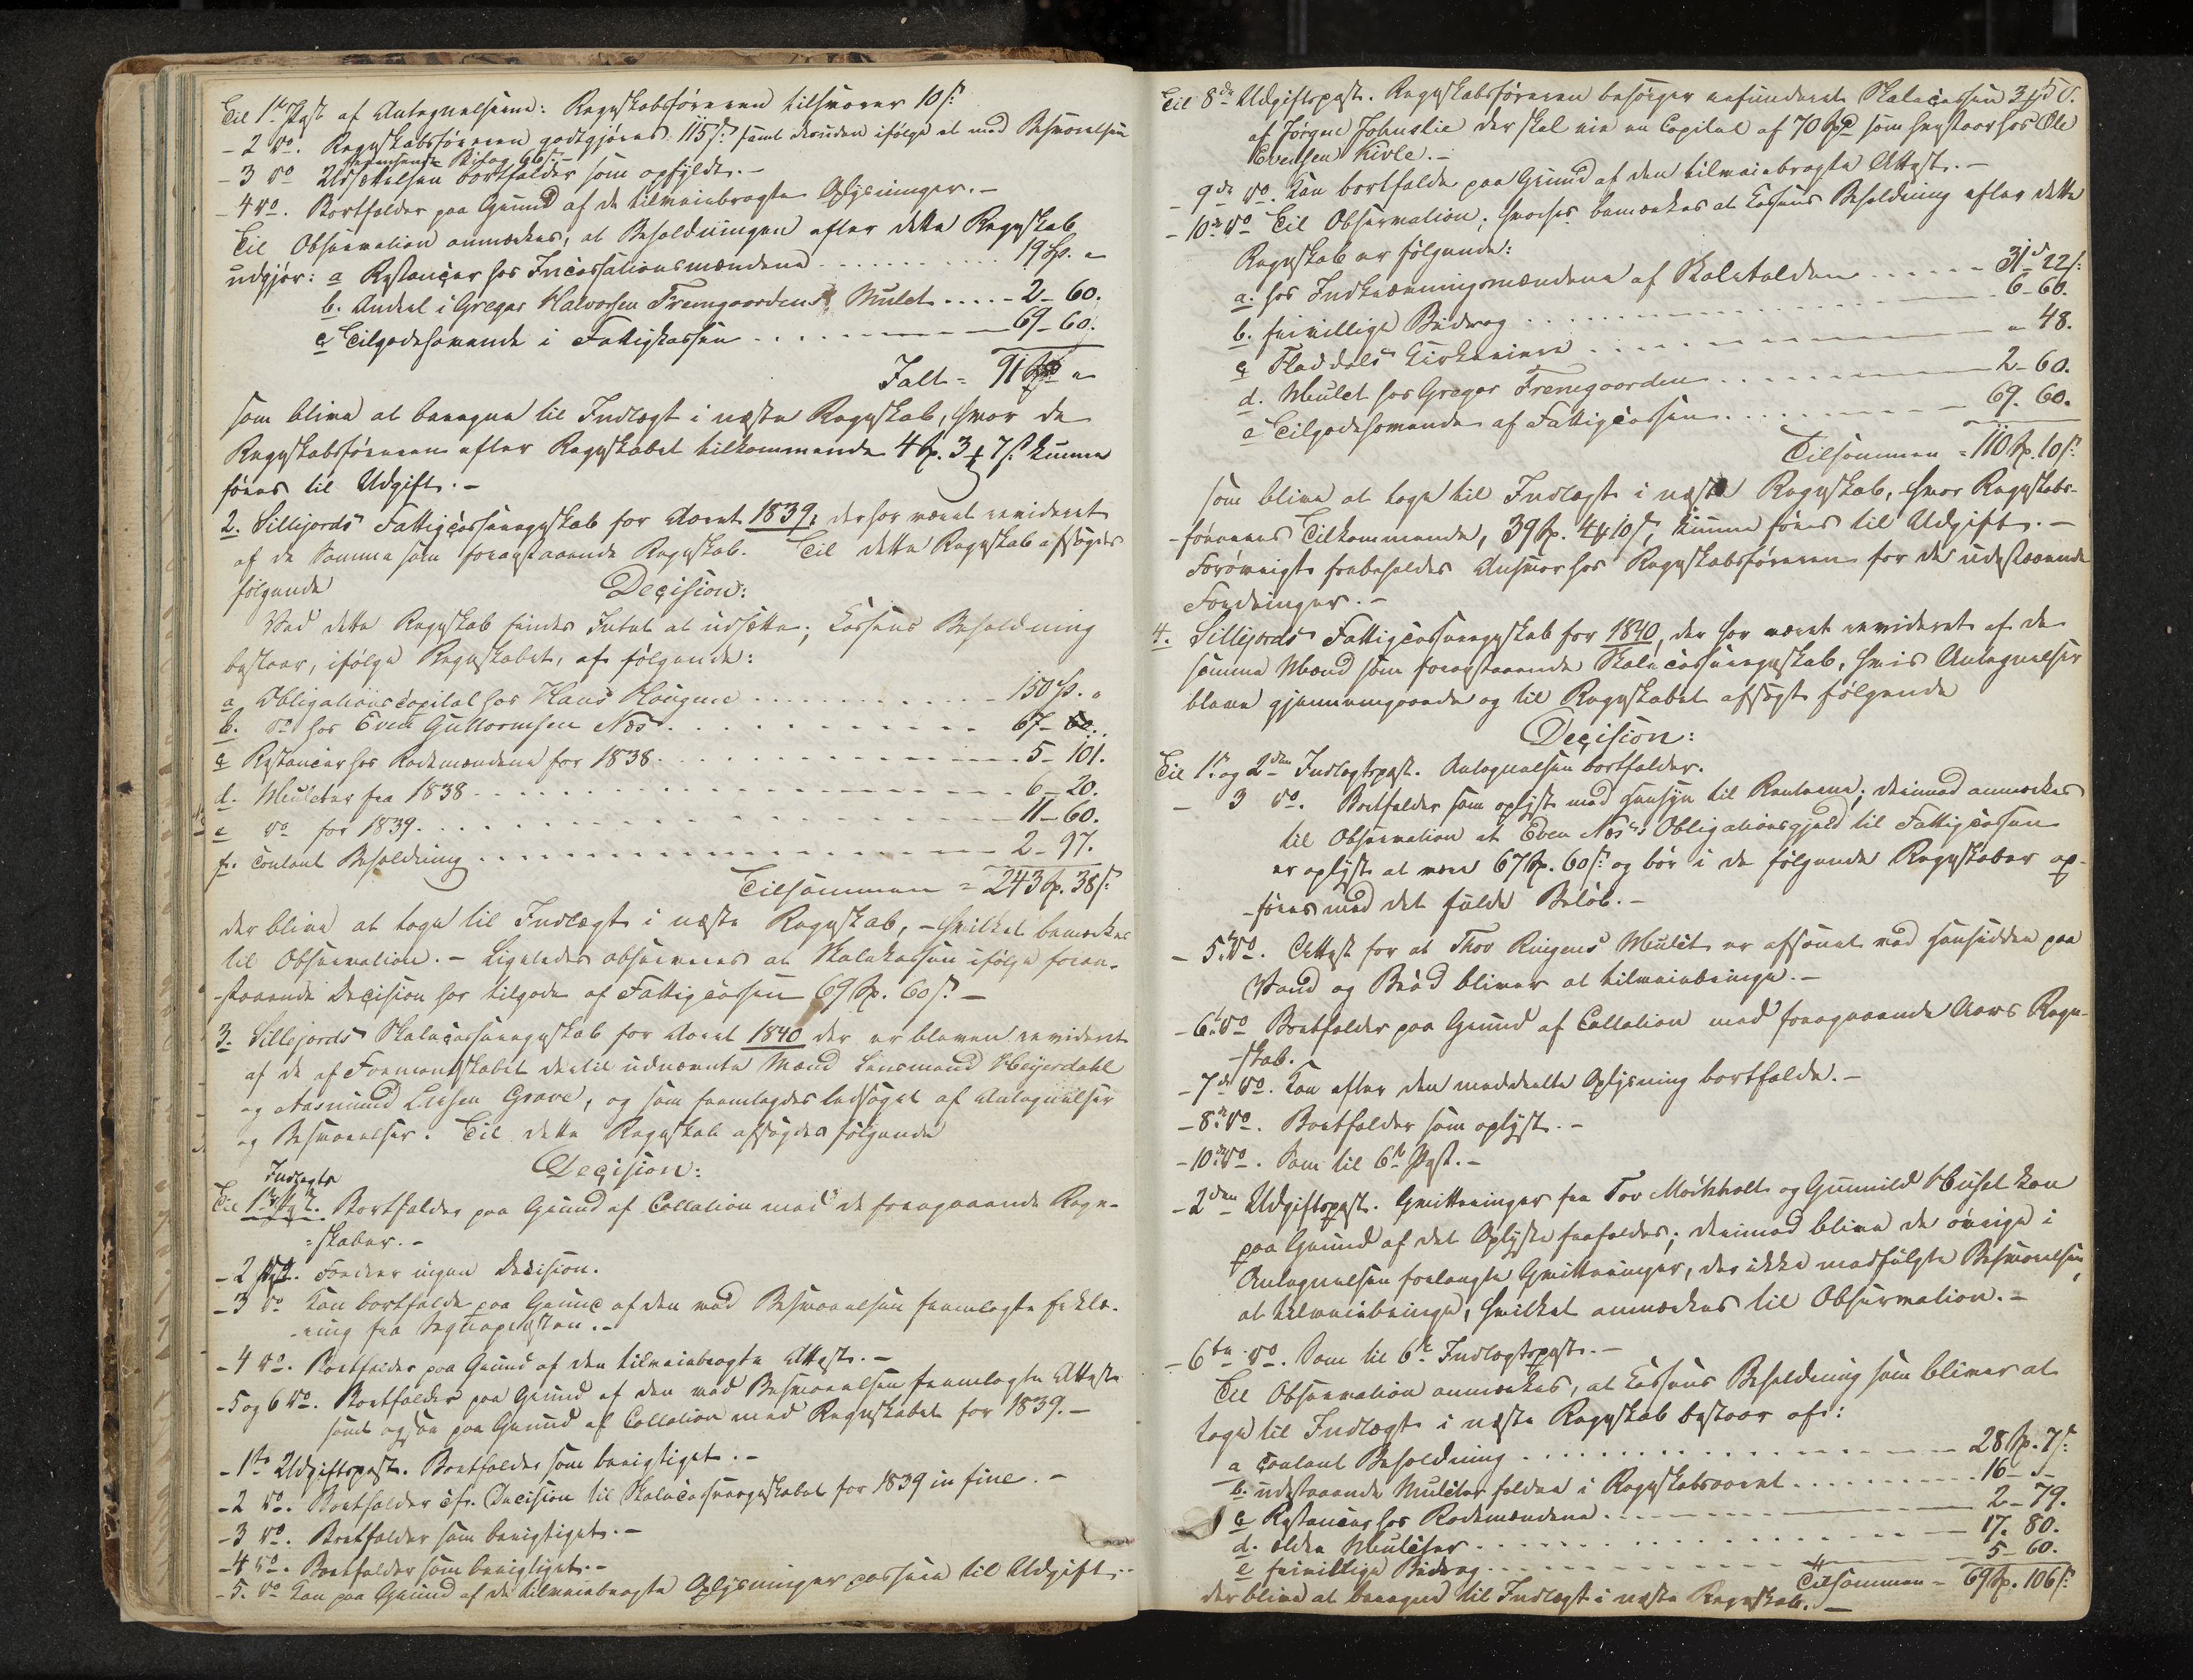 Til 1ste Post af Antegnelserne: Regnskabsføreren tilsvarer 10 s:
- 2 do. Regnskabsføreren godtgjøres 115 s: samt desuden ifølge et med Besvarelsen
fremsendt Bilag 96 s:-
- 3 do Udsættelsen bortfalder som opfyldt.-
- 4 do. Bortfalder paa Grund af de tilveiebragte Oplysninger.-
Til Observation anmærkes, at Beholdningen efter dette Regnskab
udgjør: a Restancer hos Incassationsmændene . . . . . . . . 19 Sp. "
b. Andeel i Gregar Halvorsen Fremgaardens Mulct . . . . - 2 - 60.
c Tilgodehavende i Fattigkassen . . . . . - 69 - 60.
Ialt = 91 Spd "
som blive at beregne til Indtægt i næste Regnskab, hvor de
Regnskabsføreren efter Regnskabet tilkommende 4 Sp. 3 # 7 s: kunne
føres til Udgift.-
2. Sillejords Fattigcasseregnskab for Aaret 1839, der har været revideret
af de Samme som foregstaaende Regnskab. Til dette Regnskab afsagdes
følgende
Decision:
Ved dette Regnskab findes Intet at udsætte; Cassens Beholdning
bestaar, ifølge Regnskabet, af følgende:
a Obligationscapital hos Hans Haugene . . . . . . . . 150 Sp. "
b. do hos Even Guttormsen Næs . . . . . . . . - 67 - 60.
c Restancer hos Rodemændene for 1838 . . . . . . . - 5 - 101.
d. Mulcter fra 1838 . . . . . . . . . . - 6 - 20.
e do for 1839 . . . . . . . . . . - 11 - 60.
f. contant Beholdning . . . . . . . . . . - 2 - 97.
Tilsammen = 243 Sp. 38 s:
der blive at tage til Indtægt i næste Regnskab, - hvilket bemærkes
til Observation. - Ligeledes observeres at Skolekassen ifølge foran-
-staaende Decision har tilgode af Fattigcassen 69 Sp. 60 s: -
3. Sillejords Skolecasseregnskab for Aaret 1840 der er bleven revideret
af de af Formandskabet dertil udnævnte Mænd Lensmand Heyerdahl
og Aasmund Liesen Grave, og som fremlagdes ledsaget af Antegnelser
og Besvarelser. Til dette Regnskab afsagdes følgende
Decision:
Indtægts
Til 1ste Post. Bortfalder paa Grund af Collation med de foregaaende Regn-
=skaber.-
- 2 Post. Fordrer ingen Decision.
- 3 do Kan bortfalde paa Grund af den med Besvarelsen fremlagte Erklæ-
-ring fra Sognepresten.-
- 4 do. Bortfalder paa Grund af den tilveiebragte Attest.-
- 5 og 6 do. Bortfalder paa Grund af den med Besvarelsen fremlagte Attest
samt ogsaa paa Grund af Collation med Regnskabet for 1839.-
- 1ste Udgiftspost. Bortfalder som berigtiget.-
- 2 do. Bortfalder cfr. Decision til Skolecasseregnskabet for 1839 in fine.-
- 3 do. Bortfalder som berigtiget.-
- 4 do. Bortfalder som berigtiget.-
- 5. do Kan paa Grund af de tilveiebragte Oplysninger passere til Udgift.-
Til 8de Udgiftspost. Regnskabsføreren besørger refunderet Skolecassen
af Jørgen Johnslie der skal eie en Capital af 70 Spd som henstaar hos Ole
Evensen Kivle.-
- 9de do. Kan bortfalde paa Grund af den tilveiebragte Attest.-
- 10de do Til Observation; hvorhos bemærkes at Cassens Beholdning efter dette
Regnskab er følgende:
a. hos Inddrivningsmændene af Skoletolden . . . . - 31 d 22 s:
b. frivillige Bidrag . . . . . . . . . . - 6 - 60.
c Fladdals Kirkeeiere . . . . . . . . . - " 48.
d. Mulct hos Gregar Fremgaarden . . . . . . - 2 - 60.
e Tilgodehavende af Fattigcassen . . . . . . - 69. 60.
Tilsammen = 110 Sp. 10 s:
som blive at tage til Indtægt i næste Regnskab, hvor Regnskabs-
-førerens Tilkommende, 39 Sp. 4 # 10 s, kunne føres til Udgift.-
Forøvrigt forbeholdes Ansvar hos Regnskabsføreren for de udestaaende
Fordringer.-
4. Sillejords Fattigcasseregnskab for 1840, der har været revideret af de
samme Mænd som foregstaaende Skolecasseregnskab, hvis Antegnelser
bleve gjennemgaaede og til Regnskabet afsagt følgende
Decision:
Til 1ste og 2den Indtægtspost. Antegnelsen bortfalder.
- 3 do. Bortfalder som oplyst med Hensyn til Renterne; derimod anmærkes
til Observation at Even Næs's Obligationsgjæld til Fattigcassen
er oplyst at være 67 Sp. 60 s: og bør i de følgende Regnskaber op-
-føres med det fulde Beløb.-
- 5te do. Attest for at Thov Ringens Mulct er afsonet ved Hensidden paa
Vand og Brød bliver at tilveiebringe.-
- 6te do Bortfalder paa Grund af Collation med foregaaende Aars Regn-
-skab.
- 7de do. Kan efter den meddeelte Oplysning bortfalde.-
- 8de do. Bortfalder som oplyst.-
- 10de do. Som til 6te Post.-
- 2den Udgiftspost. Qvitteringer fra Tov Mørkholt og Gunnild Huset kan
paa Grund af det Oplyste frafaldes; derimod blive de øvrige i
Antegnelsen forlangte Qvitteringer, der ikke medfulgte Besvarelsen,
at tilveiebringe, hvilket anmærkes til Observation.-
- 6te do. Som til 6te Indtægtspost.-
Til Observation anmærkes, at Cassens Beholdning som bliver at
tage til Indtægt i næste Regnskab bestaar af:
a contant Beholdning . . . . . . . . . . - 28 Sp. 7 s:
b. udestaaende Mulcter faldne i Regnskabsaaret . . . . . - 16 - " -
c Restancer hos Rodemændene . . . . . . . . - 2 - 79.
d. ældre Mulcter . . . . . . . . . . - 17. 80.
e frivillige Bidrag . . . . . . . . . . - 5 - 60.
Tilsammen = 69 Sp. 106 s:
der blive at beregne til Indtægt i næste Regnskab.-